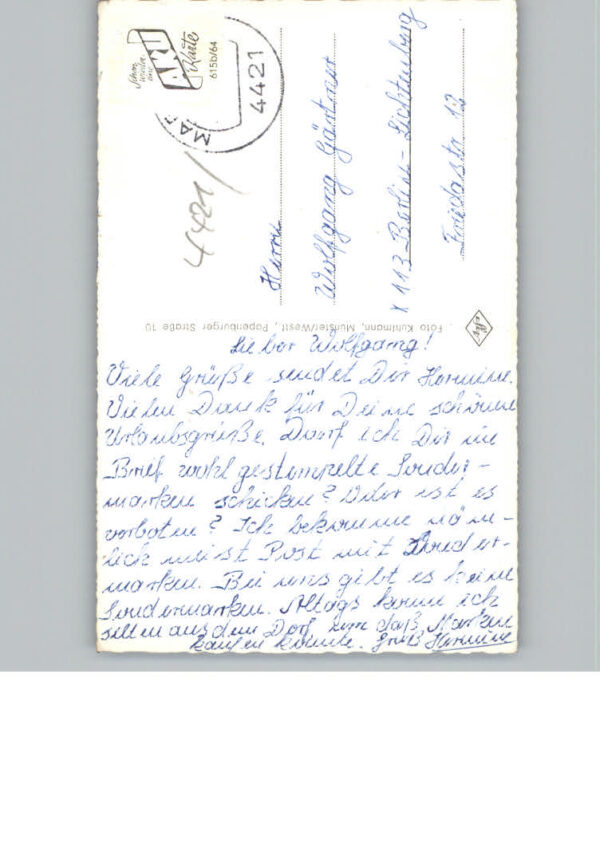 Schon
wieder
eine
ARO
Karte
615b/64
MAR
4421
4421/
Herrn
Wolfgang Gärtner
x 113 Berlin-Lichtenberg
Friedastr 13
Foto Kuhlmann, Münster/Westf., Papenburger Straße 10
Agfa
Lieber Wolfgang!
Viele Grüße sendet Dir Hermine.
Vielen Dank für Deine schönen
Urlaubsgrüße. Darf ich Dir im
Brief wohl gestempelte Sonder-
marken schicken? Oder ist es
verboten? Ich bekomme näm-
lich meist Post mit Sonder-
marken. Bei uns gibt es keine
Sondermarken. Alltags komm ich
selten aus dem Dorf daß Marken
kaufen könnte. Gruß Hermine